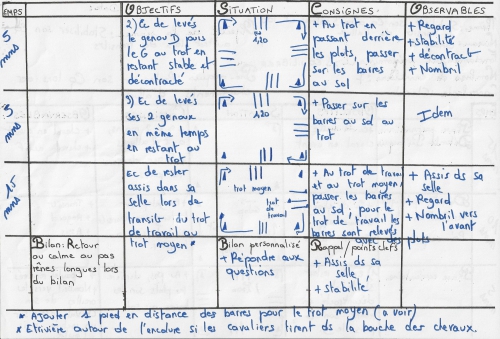 TEMPS
OBJECTIFS
SITUATION
CONSIGNES
OBSERVABLES
5
mns
2) EC de levés
le genou D puis
le G au trot en
restant stable et
décontracté
120
+ Au trot en
passant derrière
les plots, passer
sur les barres
au sol
+ Regard
+ stabilité
+ décontract°
+ Nombril
3
mns
3) EC de levés
ses 2 genoux
en même temps
en restant au
trot
120
+ Passer sur les
barres au sol au
trot
Idem
15
mns
EC de rester
assis dans sa
selle lors de
transits° du trot
de travail au
trot moyen *
trot moyen
trot
de
travail
+ Au trot de travail
et au trot moyen
passer les barres
au sol ; pour le
trot de travail les
barres sont relevés
avec des plots
+ Assis ds sa
selle
+ Regard
+ Nombril vers
l'avant
Bilan : Retour
au calme au pas
rênes longues lors
du bilan
Bilan personnalisé
+ Répondre aux
questions
Rappel / points clefs
+ Assis ds sa
selle
+ stabilité
* Ajouter 1 pied en distance des barres pour le trot moyen (a voir)
* Etrivière autour de l'encolure si les cavaliers tirent ds la bouche des chevaux.